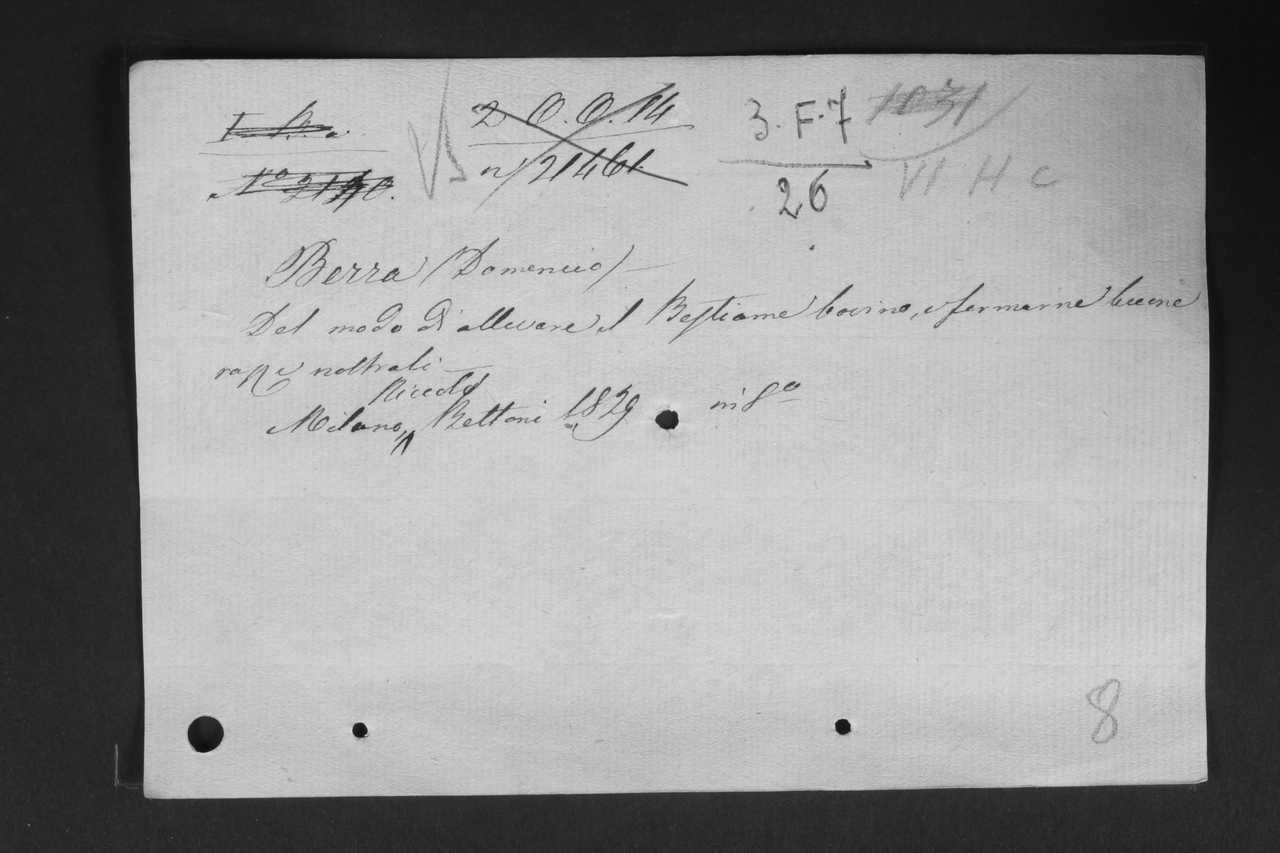 2 O.O.14
n. 21461.
3.F.7
26
1031
VI H c
Berra (Domenico)
Del modo di allevare il Bestiame bovino, e formarne buone
razze nostrali
Niccolò
Milano, Bettoni 1829 in 8º
8